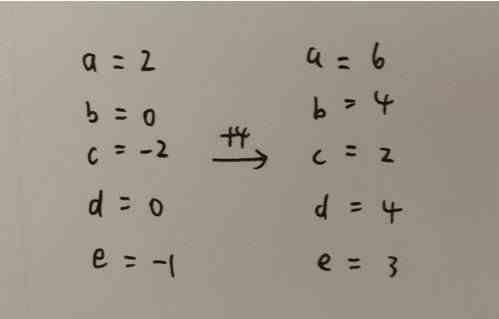 a = 2
b = 0
c = -2
d = 0
e = -1
+4
a = 6
b = 4
c = 2
d = 4
e = 3